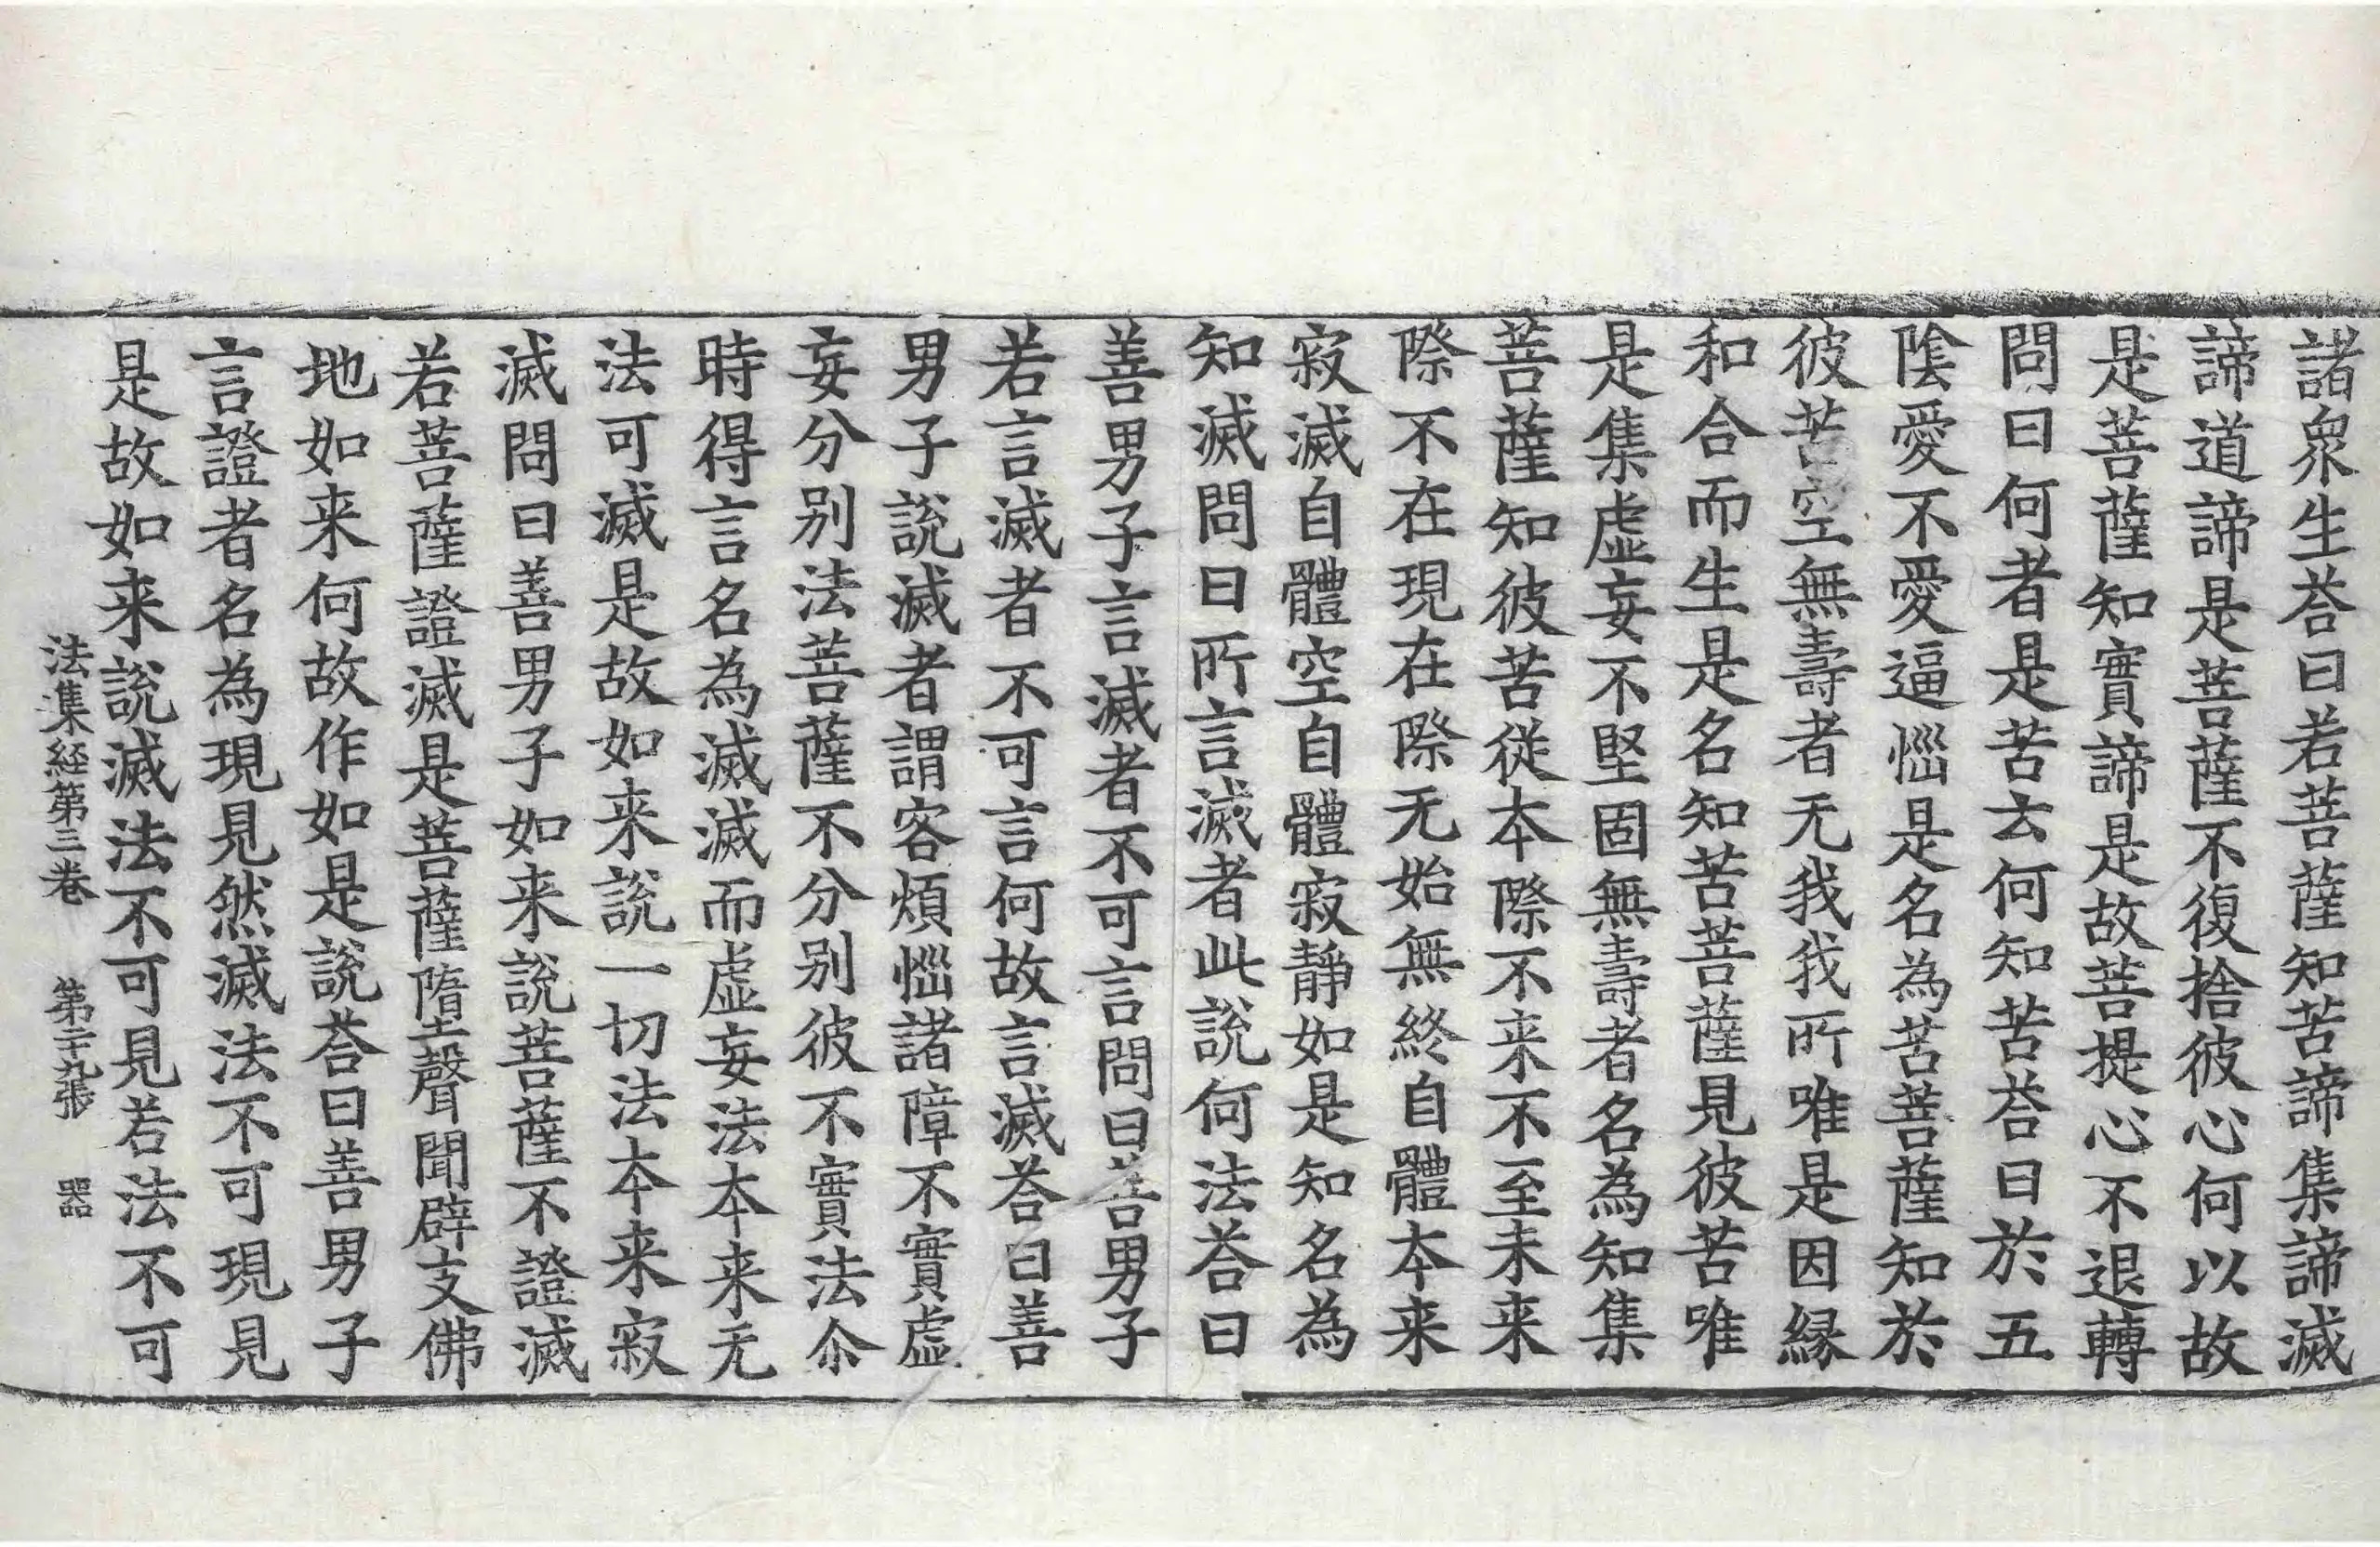 諸衆生荅曰若菩薩知苦諦集諦滅
諦道諦是菩薩不復捨彼心何以故
是菩薩知實諦是故菩提心不退轉
問曰何者是苦云何知苦荅曰於五
陰愛不愛逼惱是名為苦菩薩知於
彼苦空無壽者无我我所唯是因縁
和合而生是名知苦菩薩見彼苦唯
是集虛妄不堅固無壽者名為知集
菩薩知彼苦從本際不来不至未来
際不在現在際无始無終自體本来
寂滅自體空自體寂靜如是知名為
知滅問曰所言滅者此說何法荅曰
善男子言滅者不可言問曰善男子
若言滅者不可言何故言滅荅曰善
男子說滅者謂客煩惱諸障不實虛
妄分別法菩薩不分別彼不實法尒
時得言名為滅滅而虛妄法本来无
法可滅是故如来說一切法本来寂
滅問曰善男子如来說菩薩不證滅
若菩薩證滅是菩薩墮聲聞辟支佛
地如来何故作如是說荅曰善男子
言證者名為現見然滅法不可現見
是故如来說滅法不可見若法不可
法集経第三卷 第二十九張 器